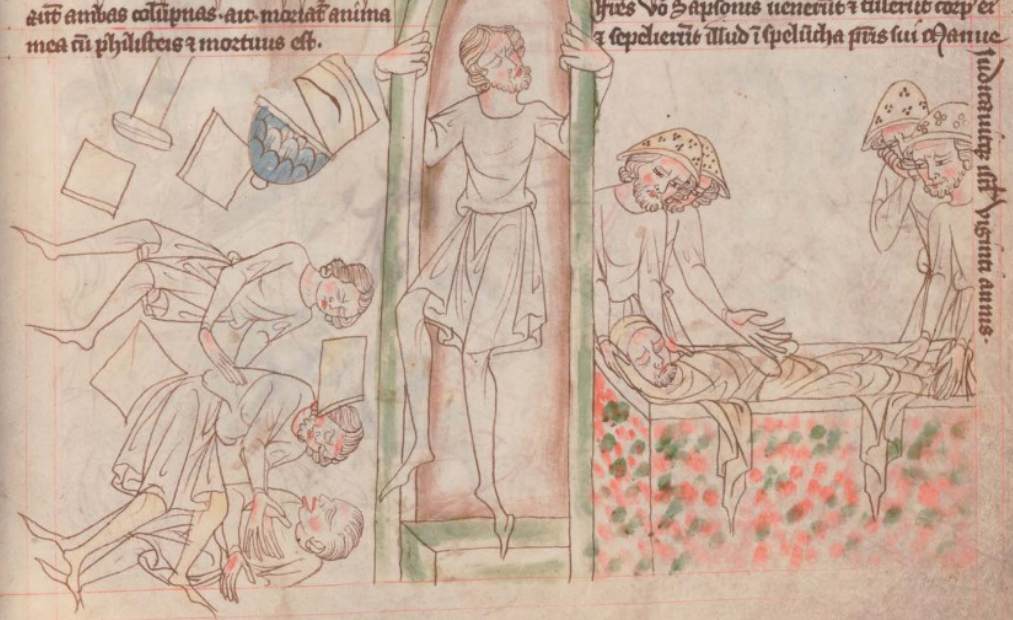 aūt ambas colūpnas · aıt · moriat᷑ anima
mea cū philisteis ⁊ mortuus est ·
fr̄es v̊o Sapsonis uenerūt ⁊ tulerūt corp᷒ ei᷒
⁊ sepelierūt illud ī spelūcha pr̄is sui Manue
Judicauitq᷒ isrl̄ viginti annis ·